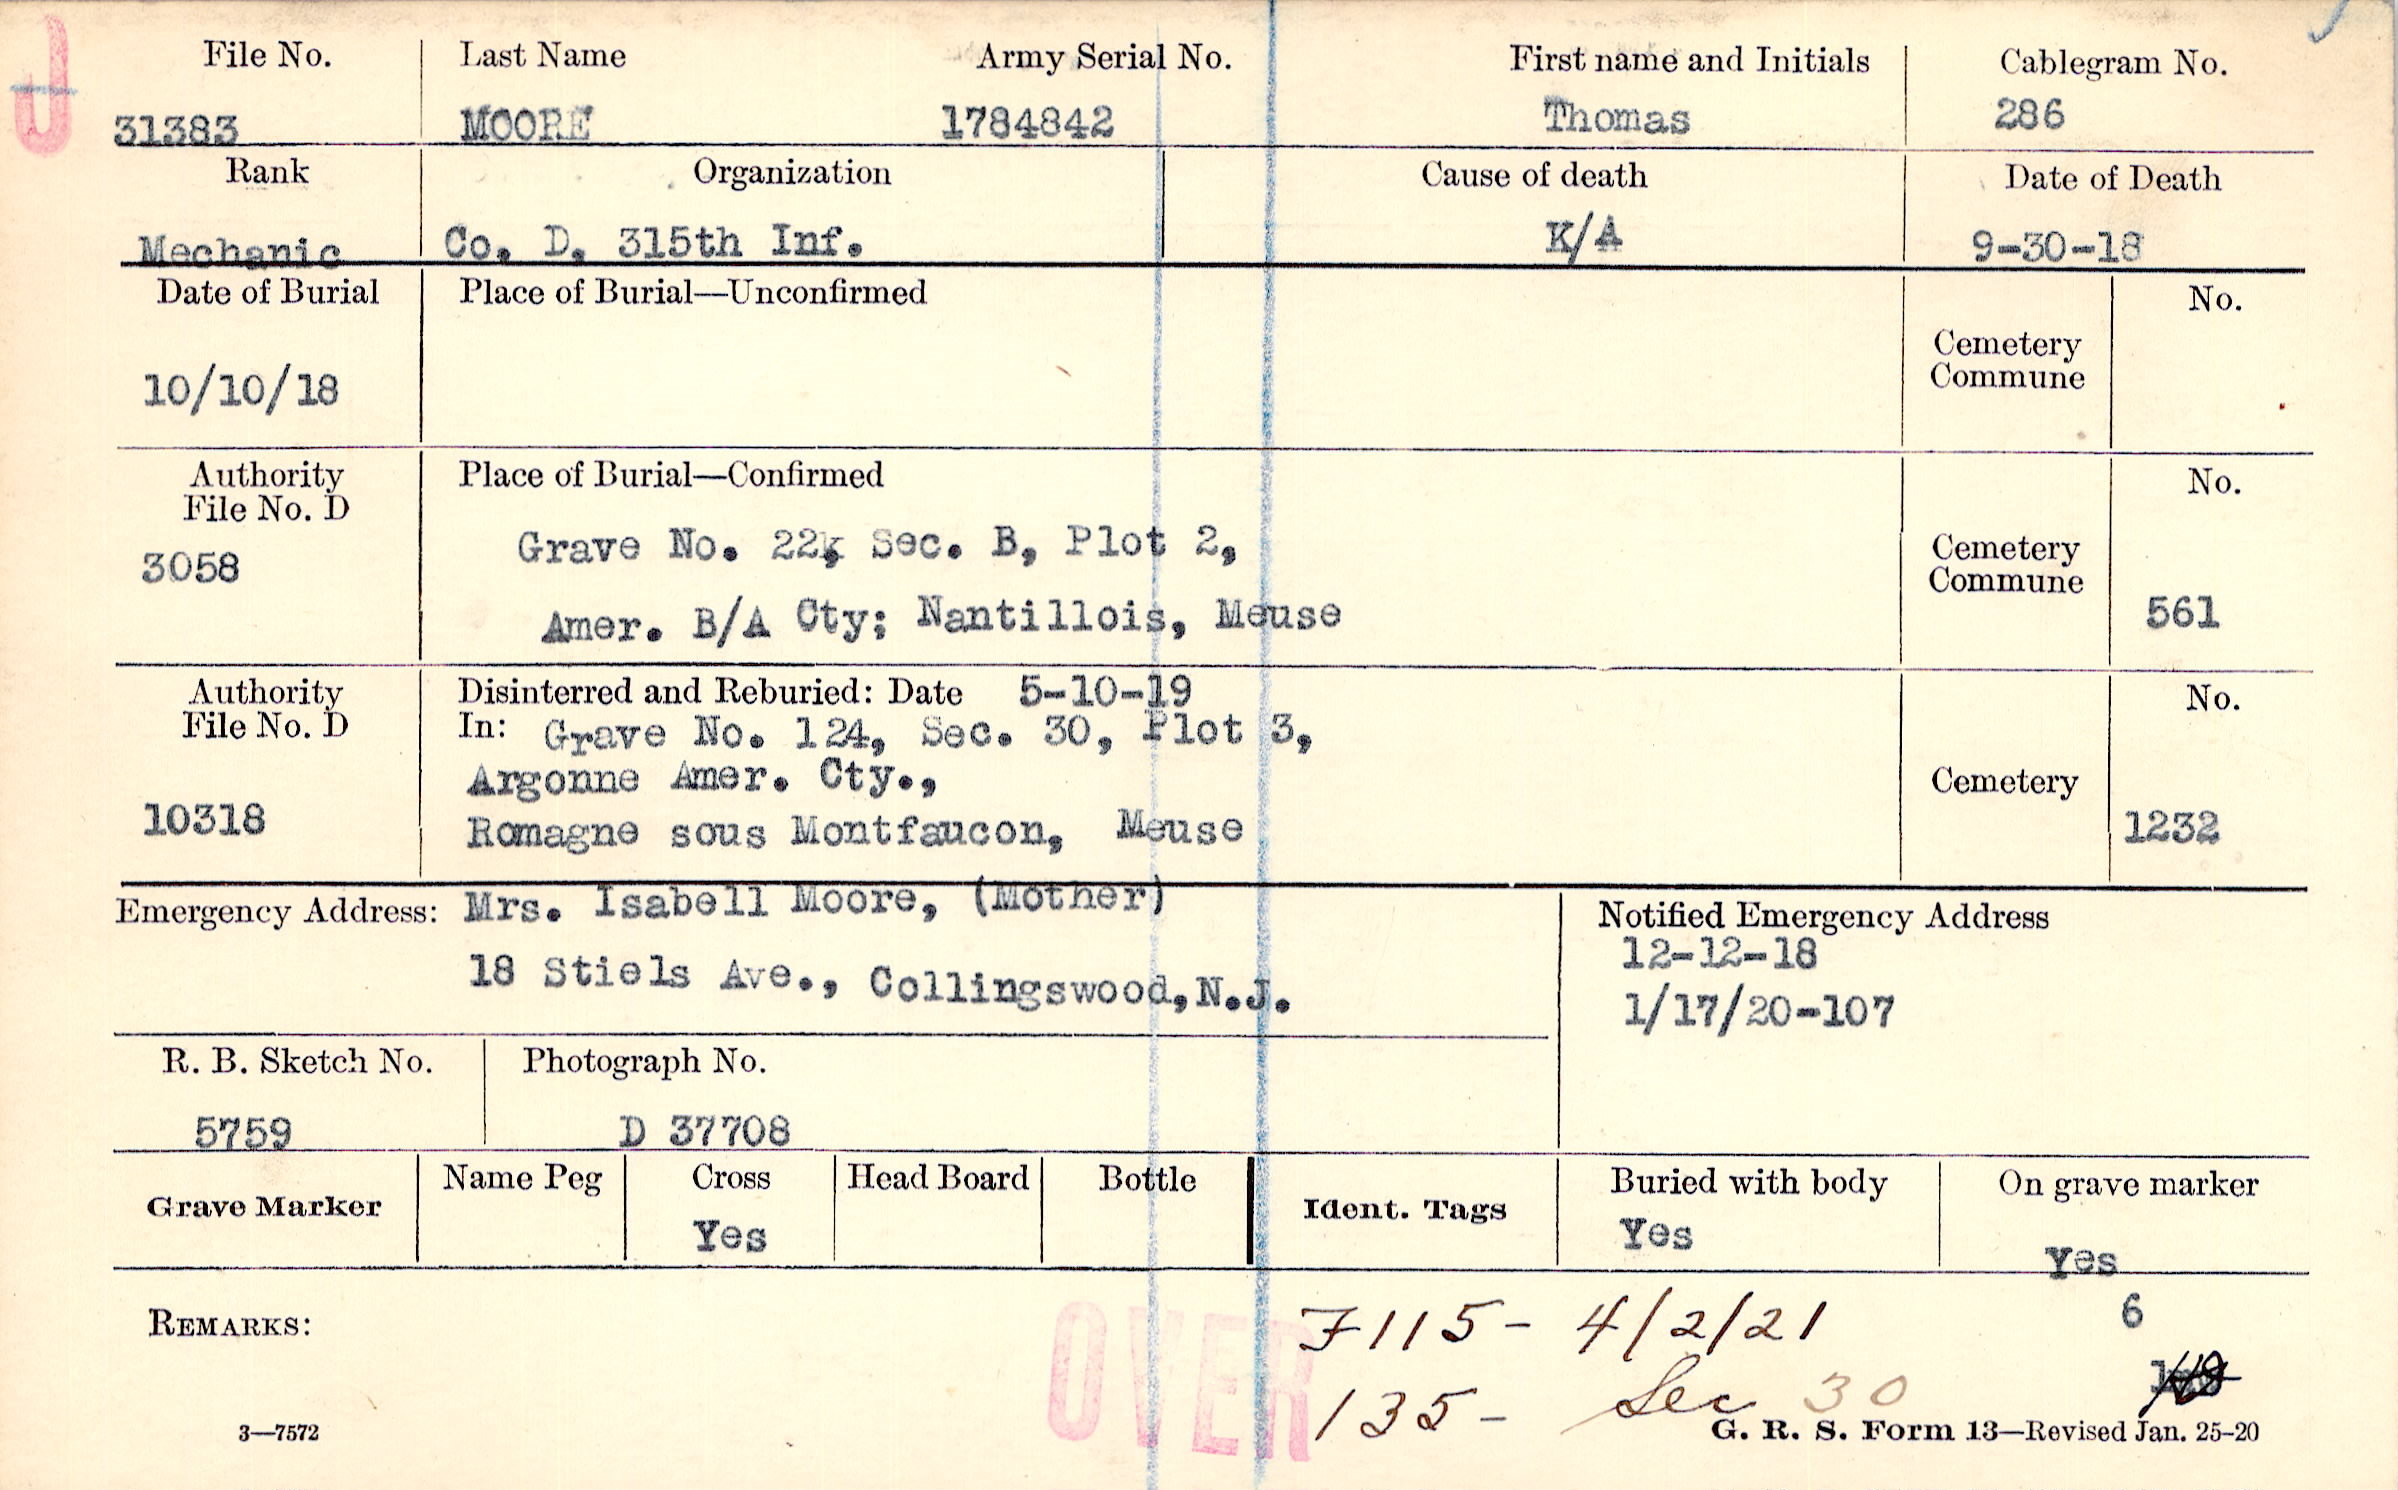 J
File No. Last Name Army Serial No. First name and Initials Cablegram No.
31383 MOORE 1784842 Thomas 286
Rank Organization Cause of death Date of Death
Mechanic Co. D. 315th Inf. K/A 9-30-18
Date of Burial Place of Burial—Unconfirmed No.
Cemetery
Commune
10/10/18
Authority Place of Burial—Confirmed No.
File No. D
Grave No. 22, Sec. B, Plot 2, Cemetery
3058 Commune
Amer. B/A Cty; Nantillois, Meuse 561
Authority Disinterred and Reburied: Date 5-10-19 No.
File No. D In: Grave No. 124, Sec. 30, Plot 3,
Argonne Amer. Cty., Cemetery
10318 Romagne sous Montfaucon, Meuse 1232
Emergency Address: Mrs. Isabell Moore, (Mother) Notified Emergency Address
12-12-18
18 Stiels Ave., Collingswood,N.J.
1/17/20-107
R. B. Sketch No. Photograph No.
5759 D 37708
Grave Marker Name Peg Cross Head Board Bottle Ident. Tags Buried with body On grave marker
Yes Yes Yes
REMARKS: OVER 7115- 4/2/21 6
135- Sec 30
3—7572 G. R. S. Form 13—Revised Jan. 25-20